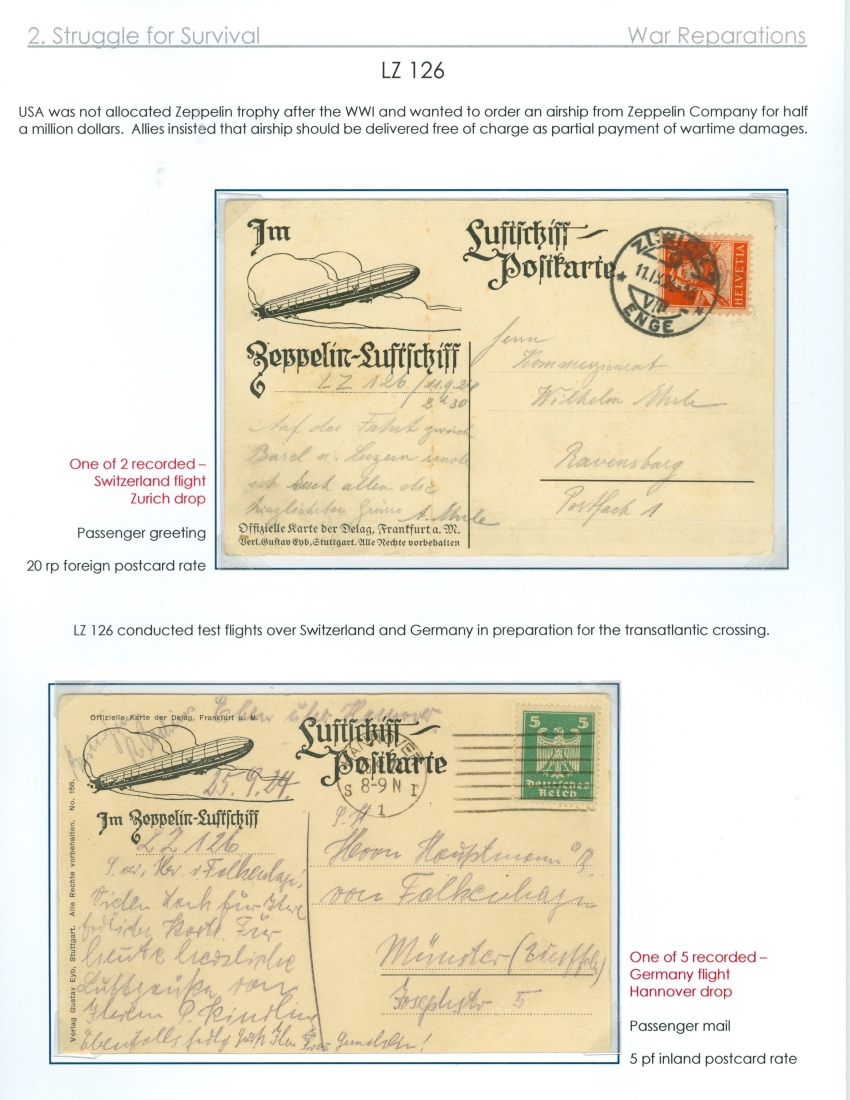 2. Struggle for Survival
War Reparations
LZ 126
USA was not allocated Zeppelin trophy after the WWI and wanted to order an airship from Zeppelin Company for half
a million dollars. Allies insisted that airship should be delivered free of charge as partial payment of wartime damages.
Im
Luftschiff-
Postkarte
HELVETIA
11.IX.24
VIII
ENGE
Zeppelin-Luftschiff
LZ 126 / 11.9.24
2 30
Herrn
Kommerzienrat
Wilhelm
Ravensburg
Postfach 1
Auf der Fahrt zwisch
Basel u. Luzern sende
ich Euch allen die
herzlichsten Grüsse
Offizielle Karte der Delag, Frankfurt a. M.
Verl. Gustav Eyb, Stuttgart. Alle Rechte vorbehalten
One of 2 recorded –
Switzerland flight
Zurich drop
Passenger greeting
20 rp foreign postcard rate
LZ 126 conducted test flights over Switzerland and Germany in preparation for the transatlantic crossing.
Offizielle Karte der Delag, Frankfurt a. M.
Eben über Hannover
25.9.24
Luftschiff-
Postkarte
S 8-9 N
1
5 5
Deutsches
Reich
Im Zeppelin-Luftschiff
LZ 126
Vielen Dank für Ihre
Karte. Für
heute herzliche
von
Ihrem P.
Ebenfalls
Verlag Gustav Eyb, Stuttgart. Alle Rechte vorbehalten. No. 156.
Herrn Hauptmann
von Falkenhayn
Münster (Westfalen)
Josephstr 5
One of 5 recorded –
Germany flight
Hannover drop
Passenger mail
5 pf inland postcard rate